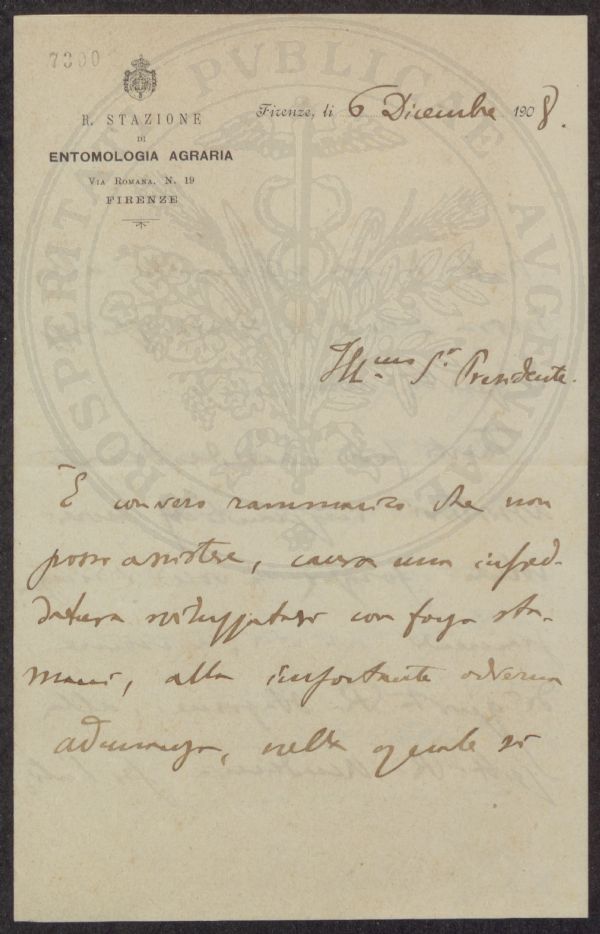 7300
R. STAZIONE
DI
ENTOMOLOGIA AGRARIA
VIA ROMANA, N. 19
FIRENZE
Firenze, li 6 Dicembre 1908.
PROSPERITATI PVBLICAE AVGENDAE
Ill.mo Sr. Presidente.
È con vero rammarico che non
posso assistere, causa una infred-
datura sviluppatasi con forza sta-
mani, alla importante odierna
adunanza, nella quale si